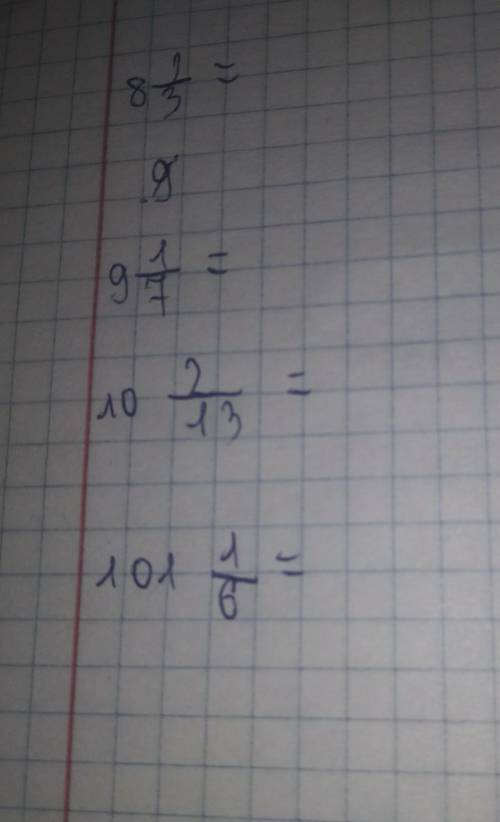 8 1/3 =
9
9 1/7 =
10 2/13 =
101 1/6 =